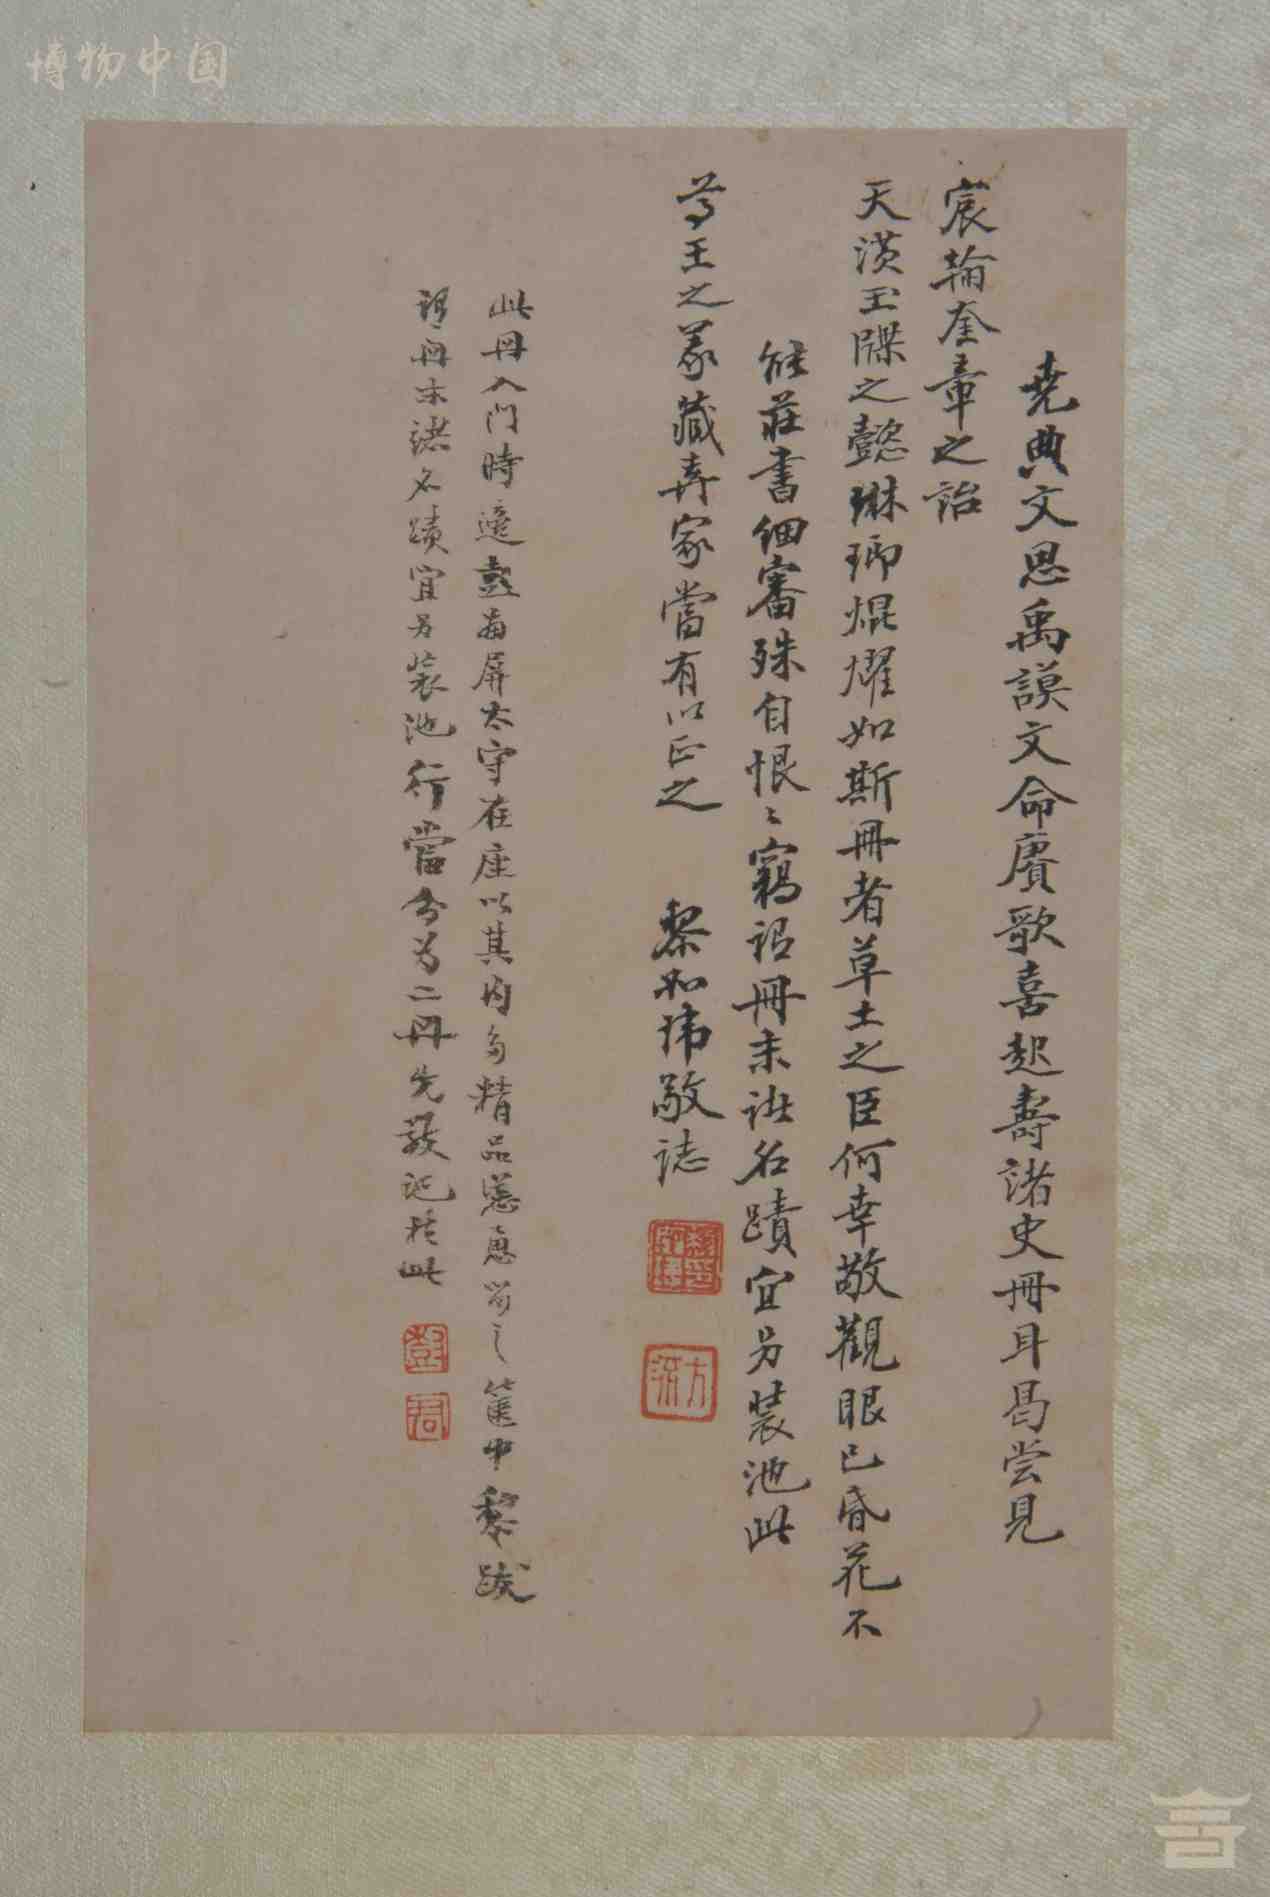 博物中国
堯典文思禹謨文命賡歌喜起壽諸史冊耳曷嘗見
宸翰奎章之詒
天潢玉牒之懿琳琅焜燿如斯冊者草土之臣何幸敬觀眼已昏花不
能莊書細審殊自恨〻竊謂冊末諸名蹟宜另裝池此
尊王之義藏弆家當有以正之 黎如瑋敬誌
此冊入門時適彭南屏太守在座以其內多精品慫恿留之篋中黎跋
謂冊末諸名蹟宜另裝池行當分為二冊先發記於此
方流